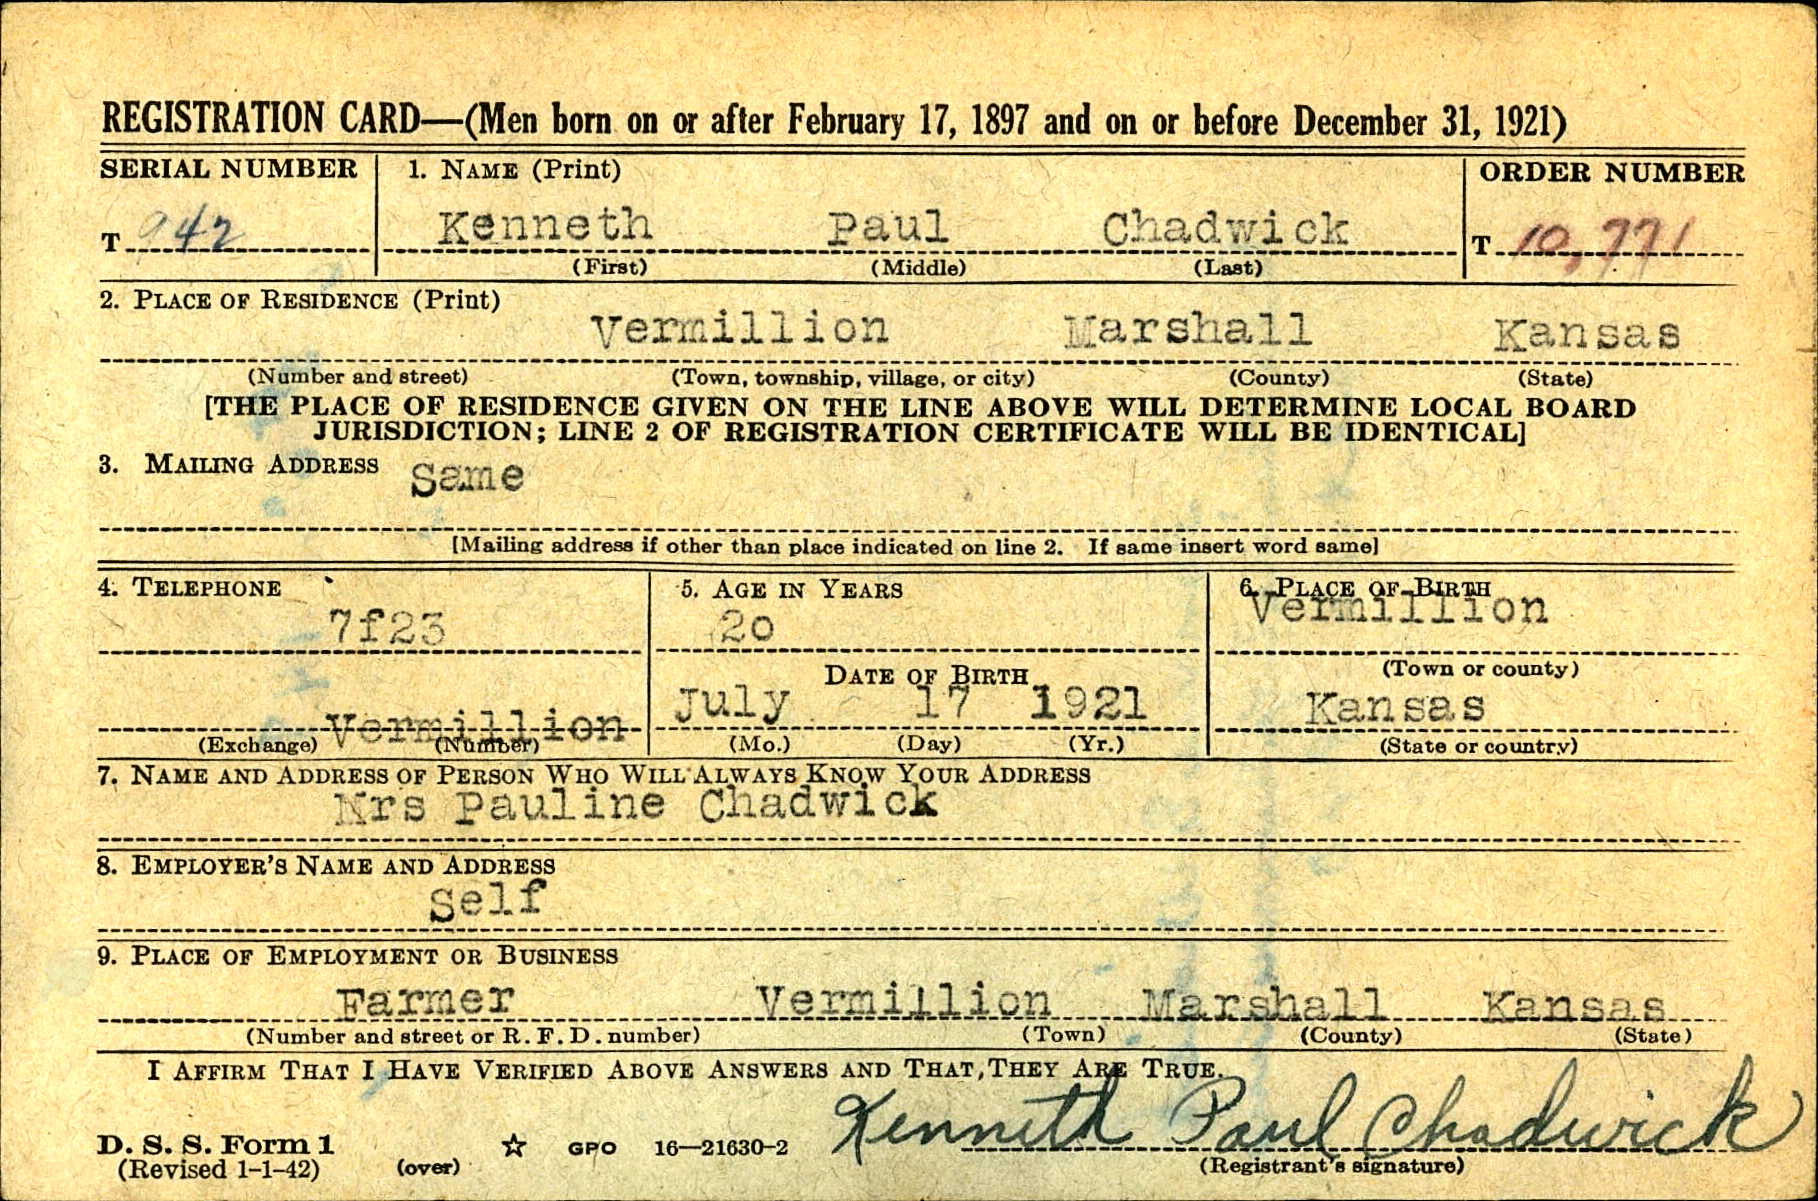 REGISTRATION CARD—(Men born on or after February 17, 1897 and on or before December 31, 1921)
SERIAL NUMBER 1. NAME (Print) ORDER NUMBER
T 942 Kenneth Paul Chadwick T 10,771
(First) (Middle) (Last)
2. PLACE OF RESIDENCE (Print)
Vermillion Marshall Kansas
(Number and street) (Town, township, village, or city) (County) (State)
[THE PLACE OF RESIDENCE GIVEN ON THE LINE ABOVE WILL DETERMINE LOCAL BOARD
JURISDICTION; LINE 2 OF REGISTRATION CERTIFICATE WILL BE IDENTICAL]
3. MAILING ADDRESS
Same
[Mailing address if other than place indicated on line 2. If same insert word same]
4. TELEPHONE 5. AGE IN YEARS 6. PLACE OF BIRTH
7f23 2o Vermillion
DATE OF BIRTH (Town or county)
Vermillion July 17 1921 Kansas
(Exchange) (Number) (Mo.) (Day) (Yr.) (State or country)
7. NAME AND ADDRESS OF PERSON WHO WILL ALWAYS KNOW YOUR ADDRESS
Mrs Pauline Chadwick
8. EMPLOYER'S NAME AND ADDRESS
Self
9. PLACE OF EMPLOYMENT OR BUSINESS
Farmer Vermillion Marshall Kansas
(Number and street or R. F. D. number) (Town) (County) (State)
I AFFIRM THAT I HAVE VERIFIED ABOVE ANSWERS AND THAT THEY ARE TRUE.
Kenneth Paul Chadwick
D. S. S. Form 1 ☆ GPO 16—21630-2
(Revised 1-1-42) (over) (Registrant's signature)